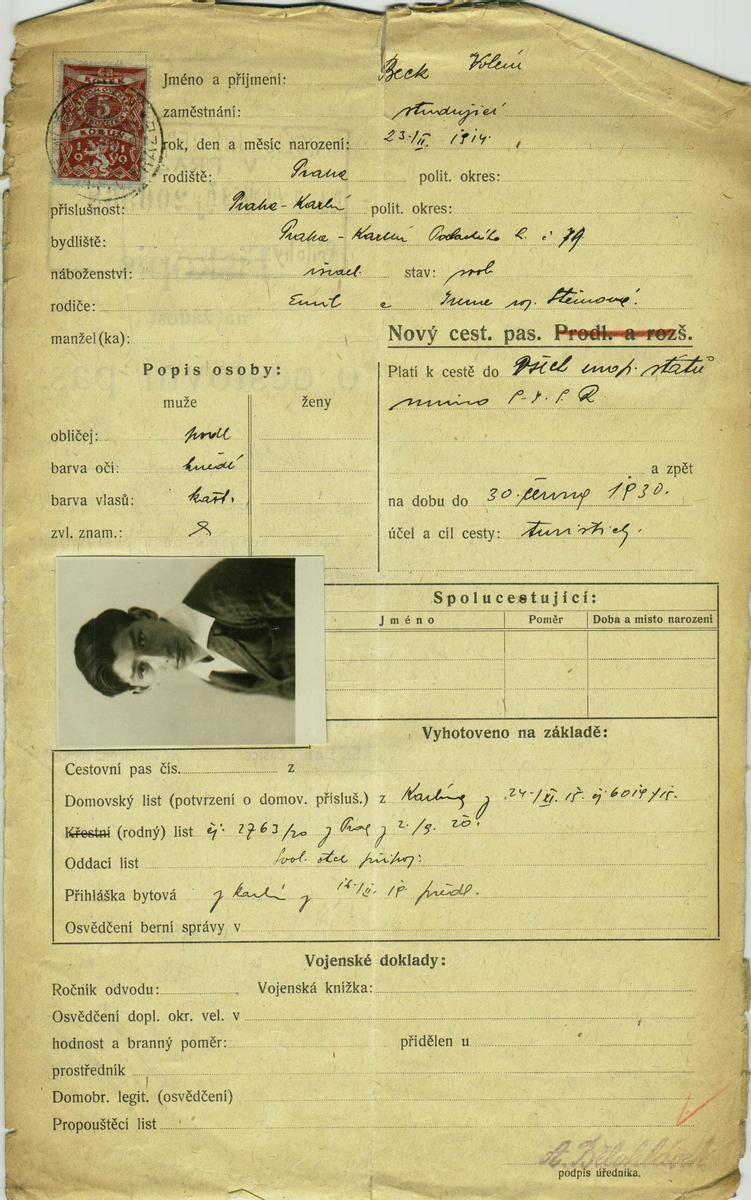 KOLEK
5
KORUN
1919
Jméno a příjmení: Beck
zaměstnání: studující
rok, den a měsíc narození: 23./II. 1914.
rodiště: Praha polit. okres:
příslušnost: Praha-Karlín polit. okres:
bydliště: Praha - Karlín č 79
náboženství: israel. stav: svob
rodiče: Emil a Irena roz. Steinová.
manžel(ka):
Nový cest. pas. Prodl. a rozš.
Popis osoby:
muže ženy
Platí k cestě do Všech evrop. států
mimo S.S.S.R
obličej: podl
barva očí: hnědé
barva vlasů: kašt.
zvl. znam.:
a zpět
na dobu do 30. června 1930.
účel a cíl cesty: turistický.
Spolucestující:
Jméno Poměr Doba a místo narození
Vyhotoveno na základě:
Cestovní pas čís. z
Domovský list (potvrzení o domov. přísluš.) z Karlína z 24./XI. 15. čj 6019/15.
Křestní (rodný) list čj: 2763/20 z z 2./9. 20.
Oddací list Svol. otce připoj:
Přihláška bytová z Karlín z
Osvědčení berní správy v
Vojenské doklady:
Ročník odvodu: Vojenská knížka:
Osvědčení dopl. okr. vel. v
hodnost a branný poměr: přidělen u
prostředník
Domobr. legit. (osvědčení)
Propouštěcí list
podpis úředníka.